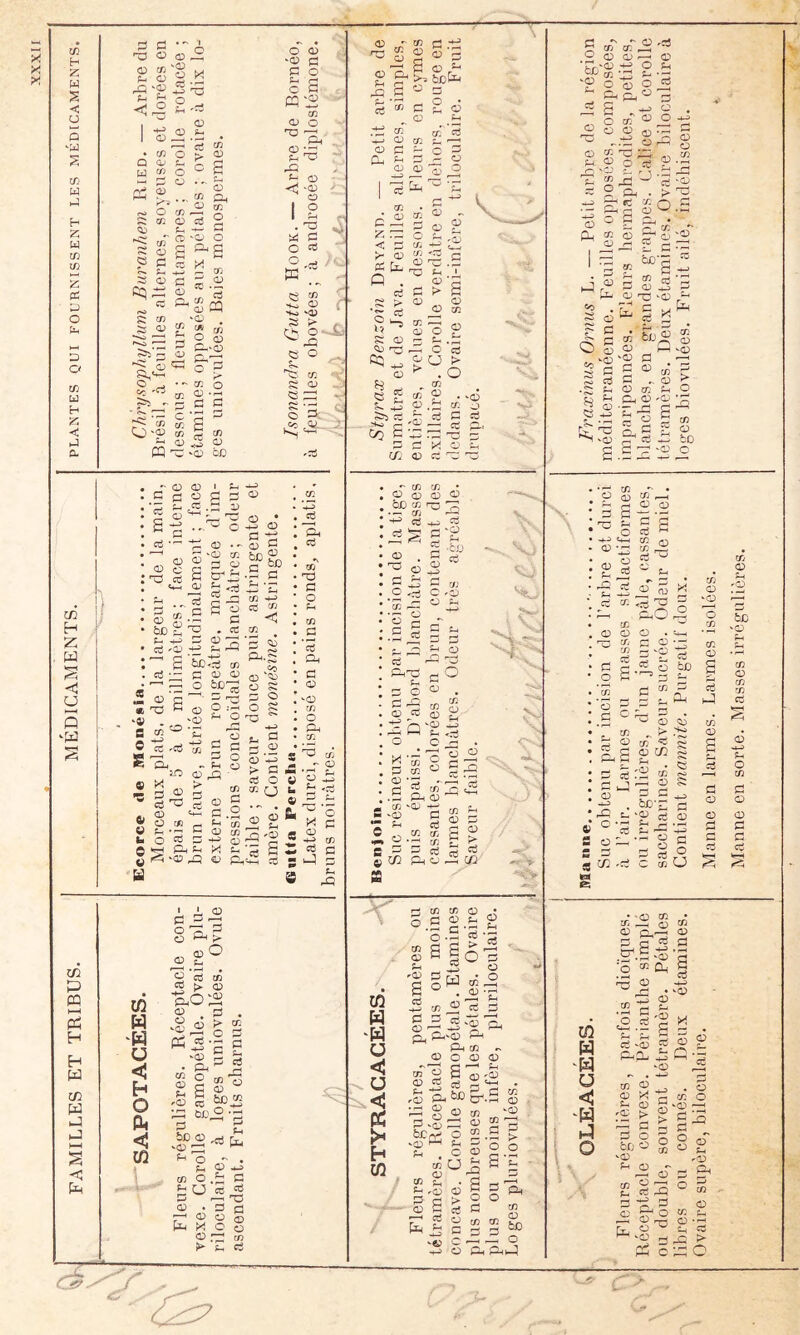 XXXII
FAMILLES ET TRIBUS.
MÉDICAMENTS.
PLANTES QUI FOURNISSENT LES MÉDICAMENTS.
SAPOTACÉES.
Fleurs régulières. Réceptacle con-
vexe. Corolle gamopétale. Ovaire plu-
riloculaire, à loges uniovulées. Ovule
ascendant. Fruits charnus.
Ecorce de Monésia
Morceaux plats, de la largeur de la main,
épais de 5 à 6 millimètres ; face interne
brun fauve, striée longitudinalement ; face
externe brun rougeâtre, marquée d'im-
pressions conchoïdales blanchâtres ; odeur
faible ; saveur douce puis astringente et
amère. Contient monésine. Astringente.
Gutta Percha
Latex durci, disposé en pains ronds, aplatis,
bruns noirâtres.
Chrysophyllum Buranhem Ried. — Arbre du
Brésil, à feuilles alternes, soyeuses et dorées en
dessous ; fleurs pentamères ; corolle rotacée ;
étamines opposées aux pétales ; ovaire à dix lo-
ges uniovulées. Baies monospermes.
Isonandra Gutta Hook. — Arbre de Bornéo,
à feuilles obovées ; à androcée diplostémone.
STYRACACÉES.
Fleurs régulières, pentamères ou
tétramères. Réceptacle plus ou moins
concave. Corolle gamopétale. Etamines
plus nombreuses que les pétales. Ovaire
plus ou moins infère, pluriloculaire.
Loges pluriovulées.
Benjoin
Suc résineux obtenu par incision de la tige,
puis épaissi. D'abord blanchâtre. Masses
cassantes, colorées en brun, contenant des
larmes blanchâtres. Odeur très agréable.
Saveur faible.
Styrax Benzoin Dryand. — Petit arbre de
Sumatra et de Java. Feuilles alternes, simples,
entières, velues en dessous. Fleurs en cymes
axillaires. Corolle verdâtre en dehors, rouge en
dedans. Ovaire semi-infère, triloculaire. Fruit
drupacé.
OLÉACÉES.
Fleurs régulières, parfois dioïques.
Réceptacle convexe. Périanthe simple
ou double, souvent tétramère. Pétales
libres ou connés. Deux étamines.
Ovaire supère, biloculaire.
Manne
Suc obtenu par incision de l'arbre et durci
à l'air. Larmes ou masses stalactiformes
ou irrégulières, d'un jaune pâle, cassantes,
saccharines. Saveur sucrée. Odeur de miel.
Contient mannite. Purgatif doux.
Manne en larmes. Larmes isolées.
Manne en sorte. Masses irrégulières.
Fraxinus Ornus L. — Petit arbre de la région
méditerranéenne. Feuilles opposées, composées,
imparipennées. Fleurs hermaphrodites, petites,
blanches, en grandes grappes. Calice et corolle
tétramères. Deux étamines. Ovaire biloculaire à
loges biovulées. Fruit ailé, indéhiscent.